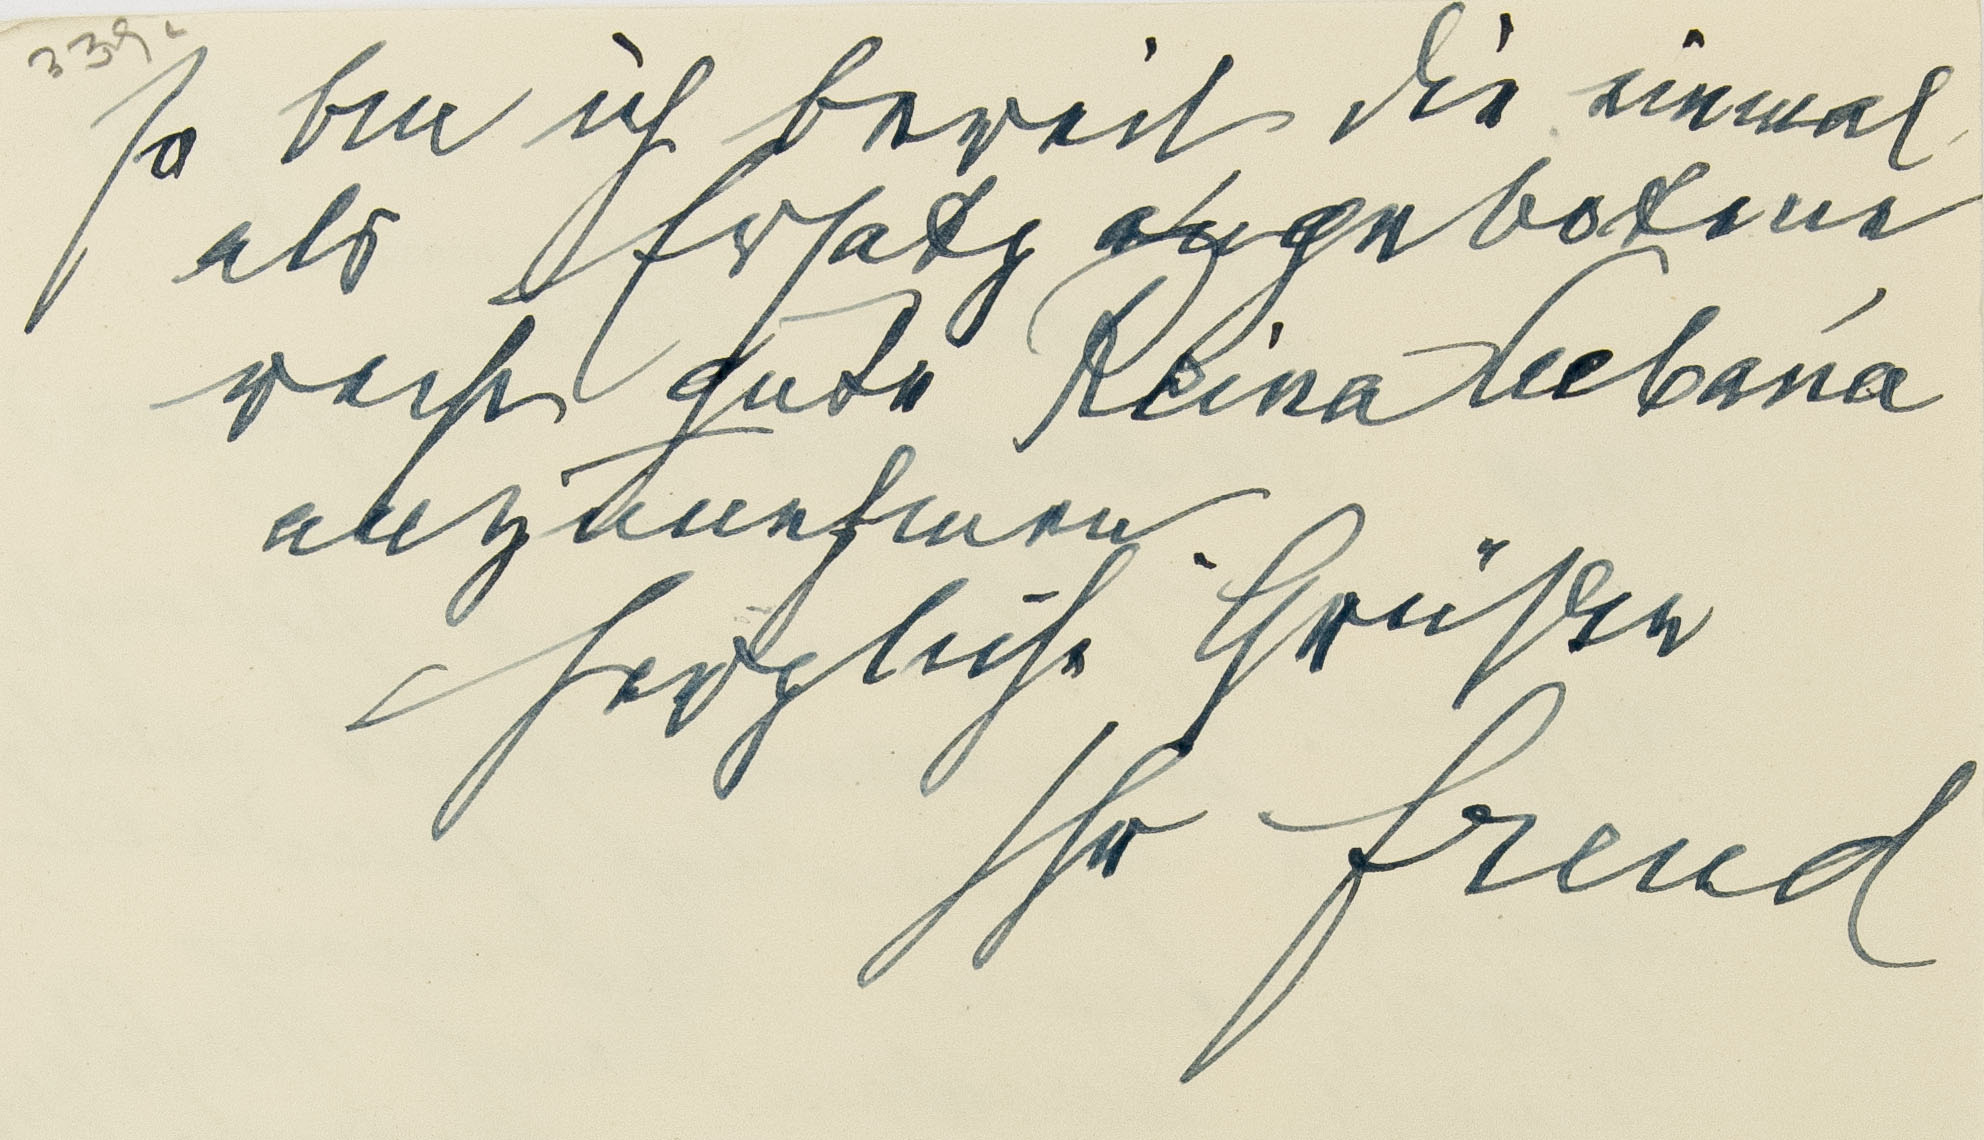 339.
so bin ich bereit die einmal
als Ersatz angebotene
recht gute Reina Cubana
anzunehmen.
Herzliche Grüße
Ihr Freud